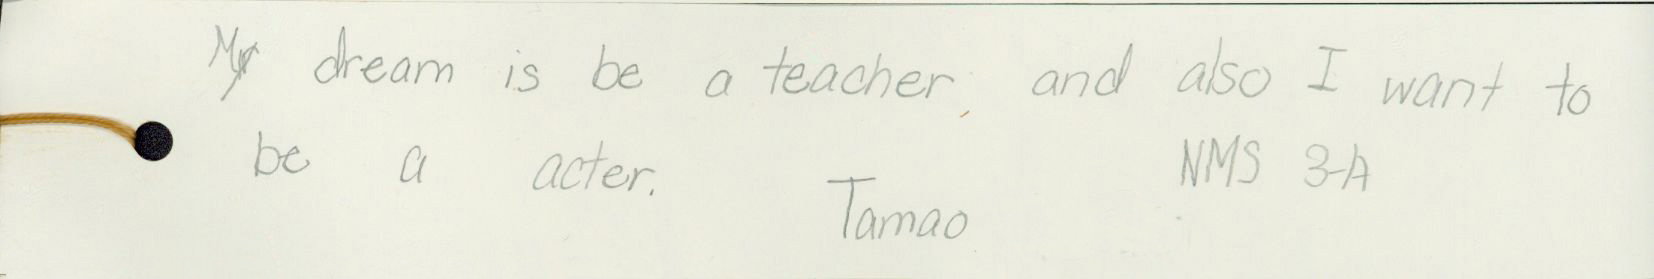 My dream is be a teacher, and also I want to
be a acter. NMS 3-A
Tamao